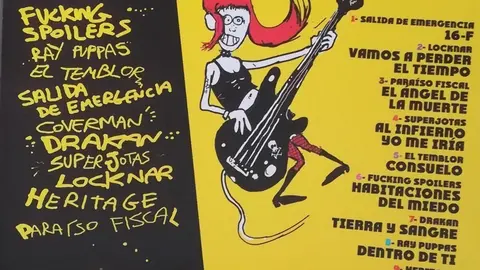 FUCKING
SPOILERS
RAY PUPPAS
EL TEMBLOR
SALIDA
DE EMERGENCIA
COVERMAN
DRAKAN
SUPERJOTAS
LOCKNAR
HERITAGE
PARAÍSO FISCAL
1- SALIDA DE EMERGENCIA
16-F
2- LOCKNAR
VAMOS A PERDER
EL TIEMPO
3- PARAÍSO FISCAL
EL ÁNGEL DE
LA MUERTE
4- SUPERJOTAS
AL INFIERNO
YO ME IRÍA
5- EL TEMBLOR
CONSUELO
6- FUCKING SPOILERS
HABITACIONES
DEL MIEDO
7- DRAKAN
TIERRA Y SANGRE
8- RAY PUPPAS
DENTRO DE TI